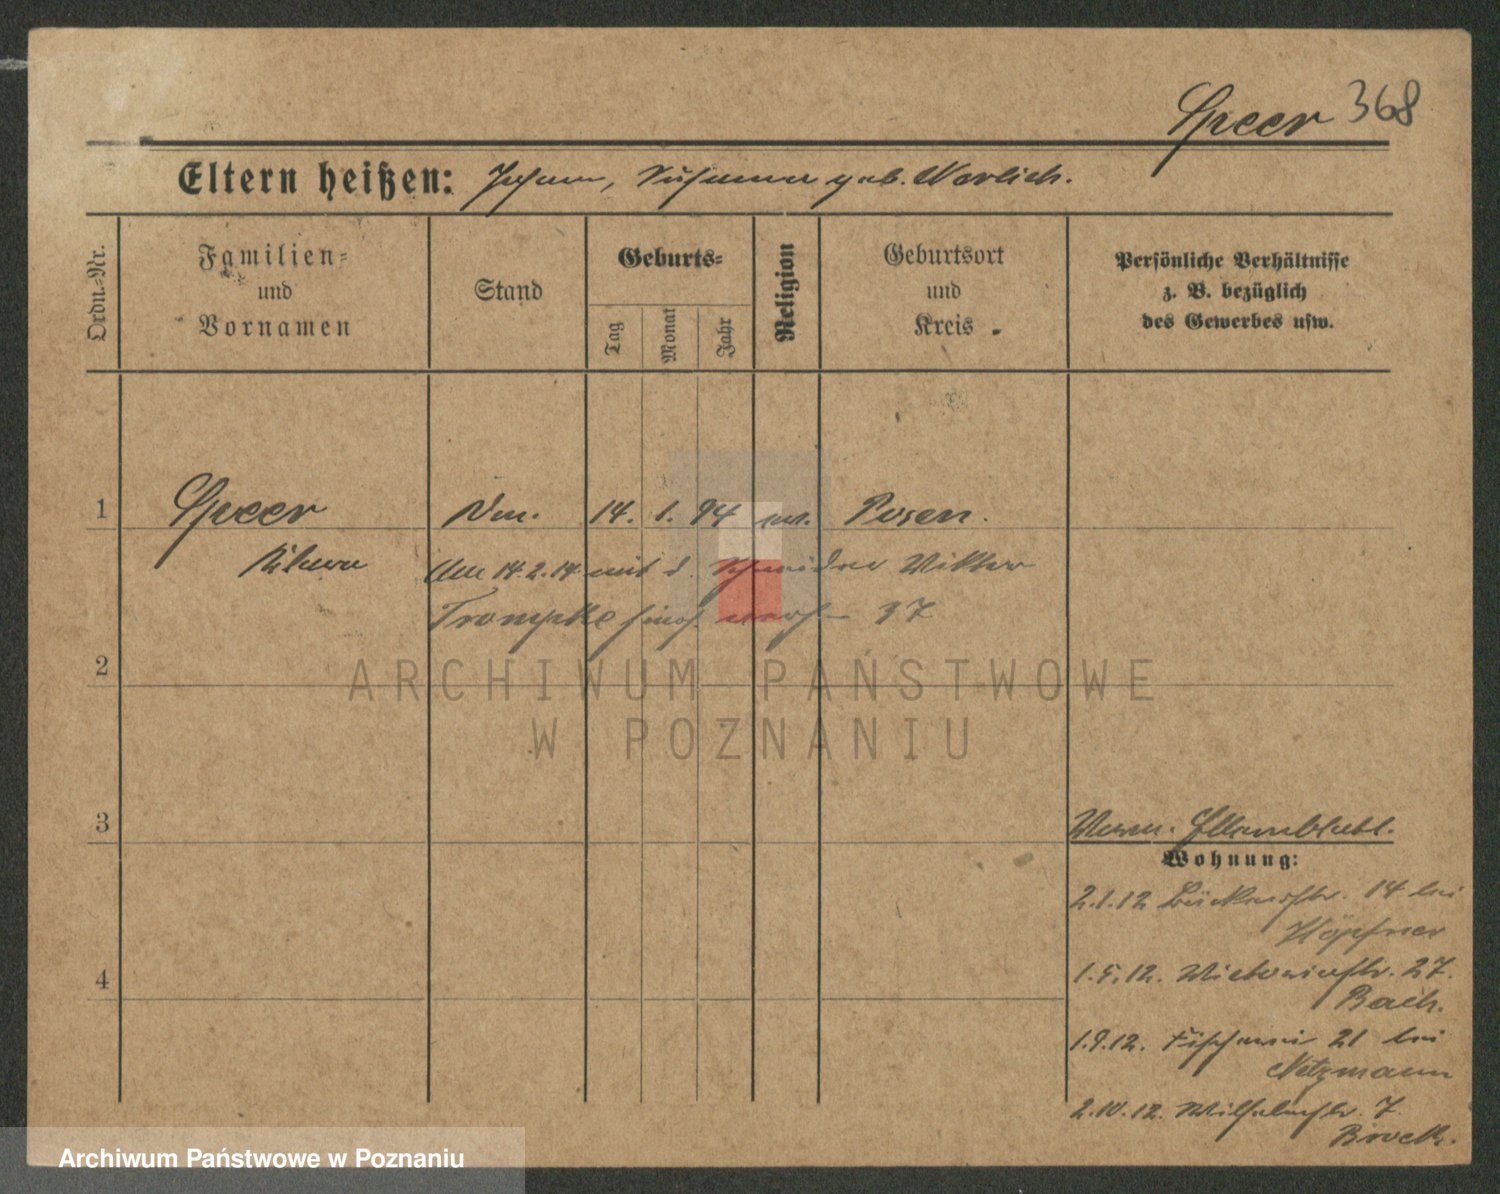 Speer 368
Eltern heißen: Johann, Susanna geb. Warlich.
Ordn.-Nr.
Familien-
und
Vornamen
Stand
Geburts-
Tag
Monat
Jahr
Religion
Geburtsort
und
Kreis
Persönliche Verhältnisse
z. B. bezüglich
des Gewerbes usw.
1 Speer 14. 1. 94 Posen.
Am 14.2.14 mit d. Schneider Viktor
Trompke 37
2
ARCHIWUM PAŃSTWOWE
W POZNANIU
3
Wohnung:
2.1.12 14 bei
Höpfner
4
1.5.12. Victoriastr. 27.
Bach.
1.9.12. Fischerei 21 bei
Netzmann
2.10.12. Wilhelmstr. 7
Brock.
Archiwum Państwowe w Poznaniu